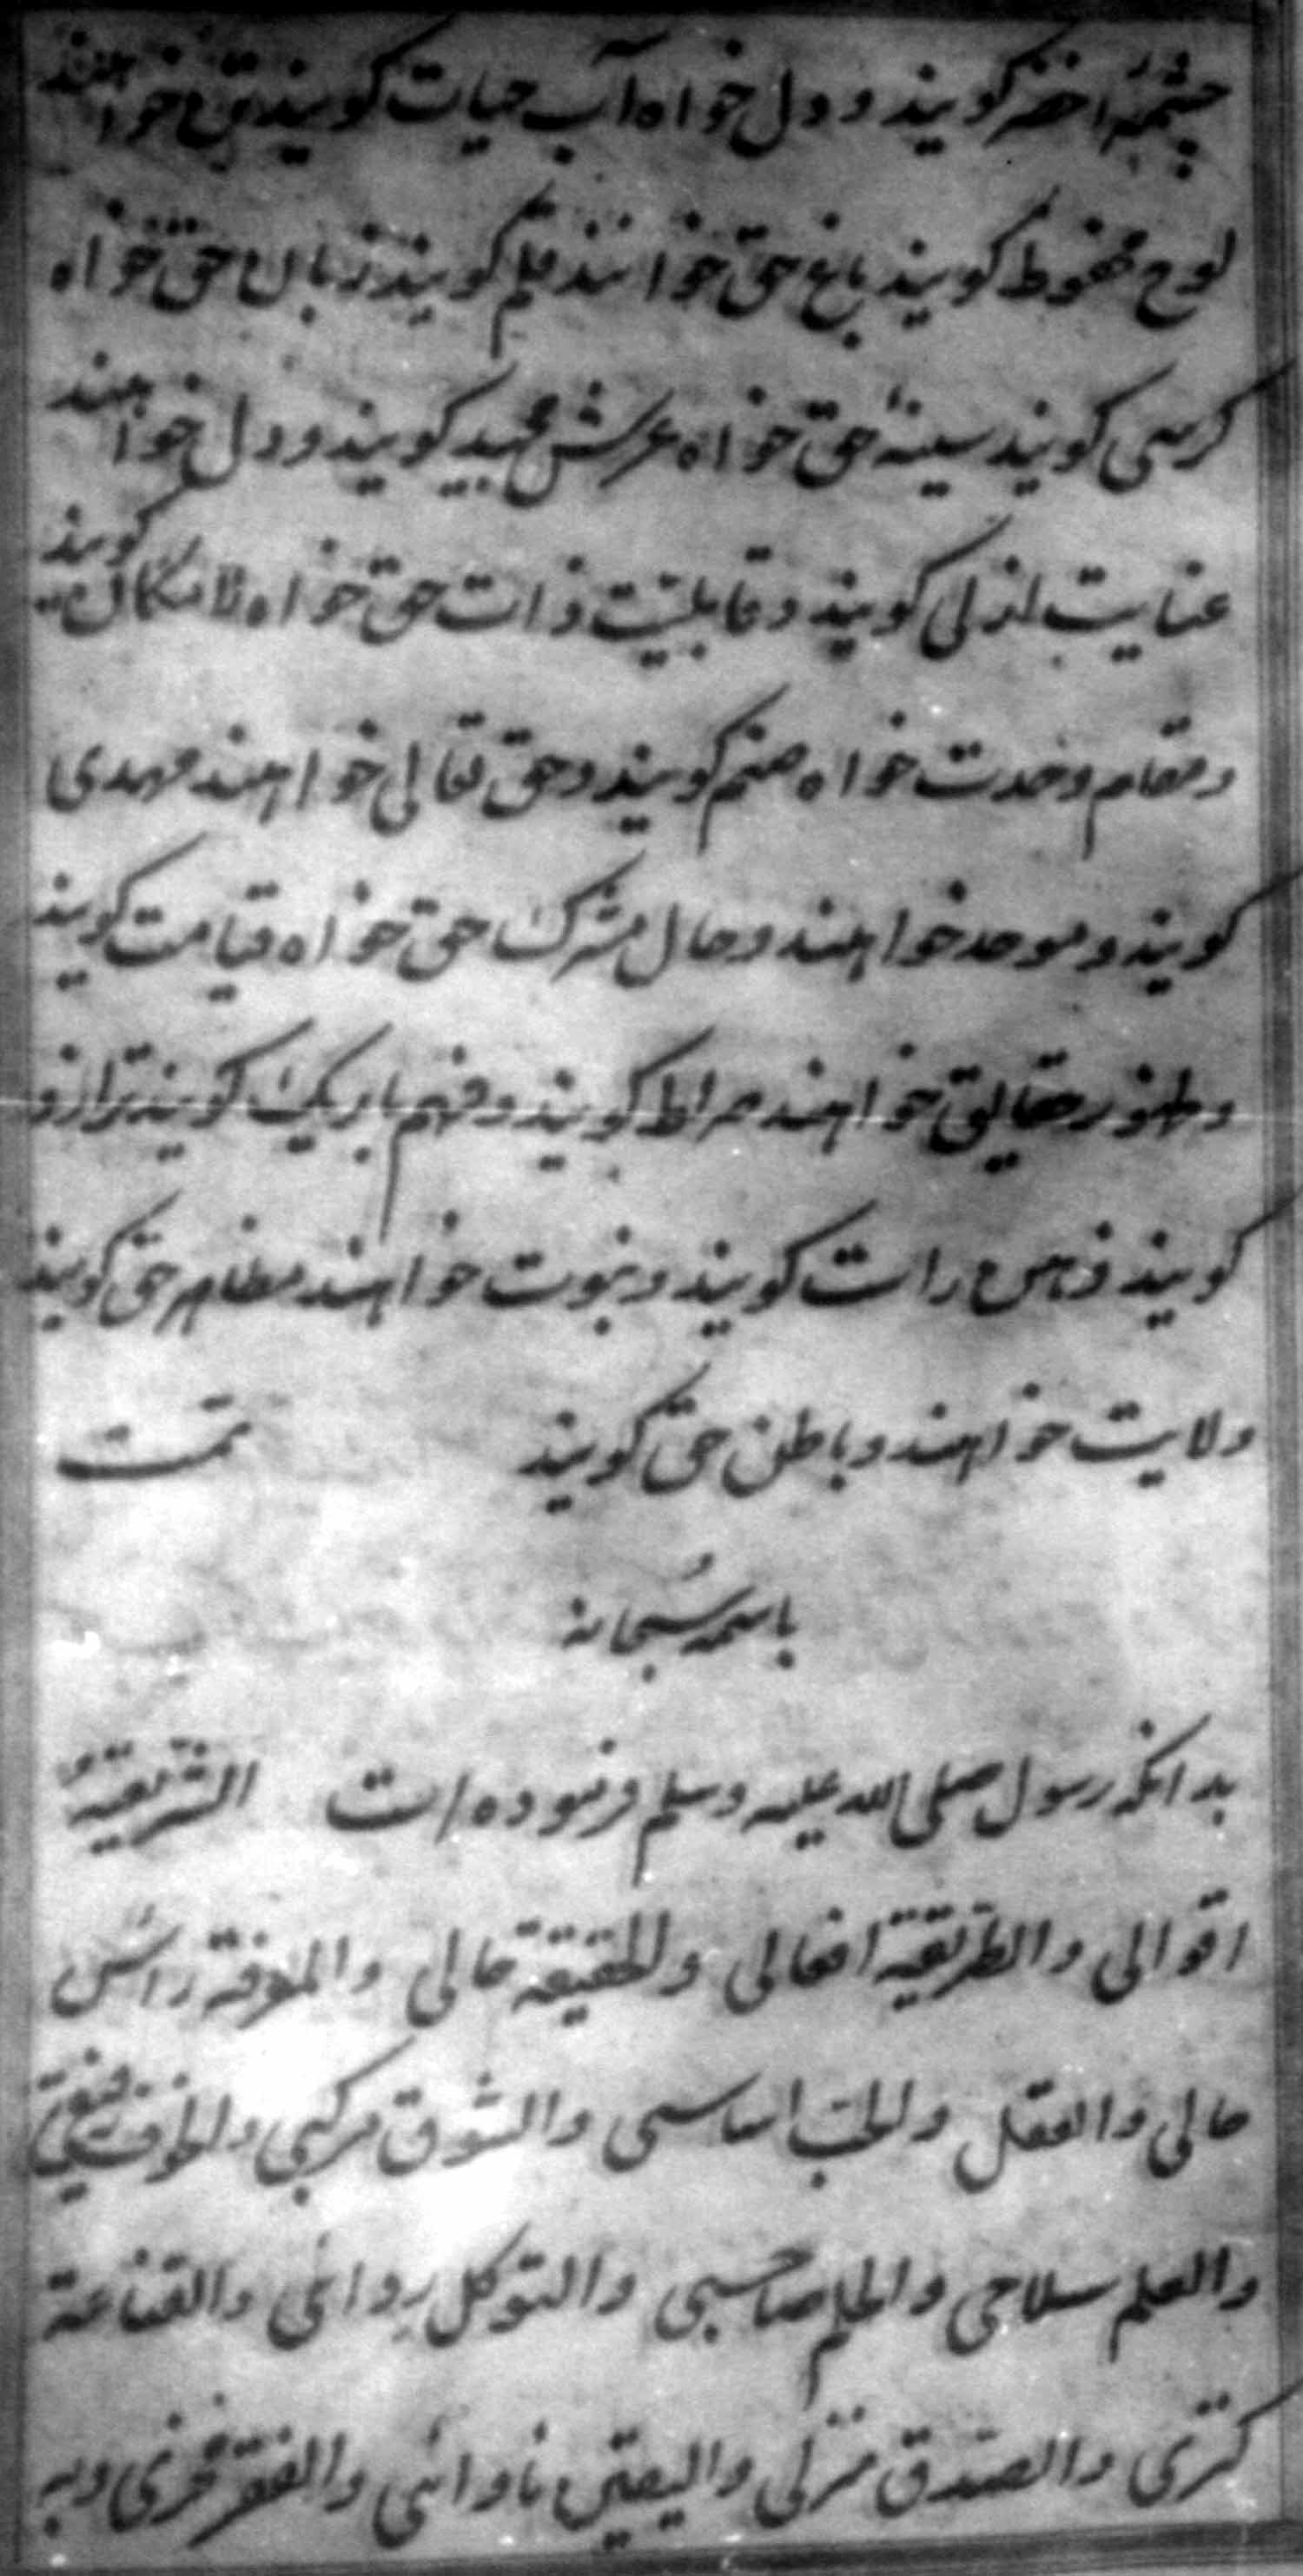 چشمهٔ اخضر گویند و دل خواه آب حیات گویند خواهند
لوح محفوظ گویند باغ حق خوانند قلم گویند زبان حق خواه
کرسی گویند سینهٔ حق خواه عرش مجید گویند و دل خواهند
عنایت ازلی گویند و قابلیت ذات حق خواه لامکان گویند
و مقام وحدت خواه صنم گویند و حق تعالی خواهند مهدی
گویند و موحد خواهند و حال مشرک حق خواه قیامت گویند
و ظهور حقایق خواهند صراط گویند و فهم باریک گویند ترازو
گویند ذهن راست گویند و نبوت خواهند مظاهر حق گویند
ولایت خواهند و باطن حق گویند تمت
باسمه سبحانه
بدانکه رسول صلی الله علیه وسلم فرموده است الشریعةُ
اقوالی والطریقة افعالی والحقیقة حالی والمعرفة راس
مالی والعقل والحب اساسی والشوق مرکبی والخوف رفیقی
والعلم سلاحی والحلم صاحبی والتوکل ردائی والقناعة
کنزی والصدق منزلی والیقین ماوائی والفقر فخری وبه